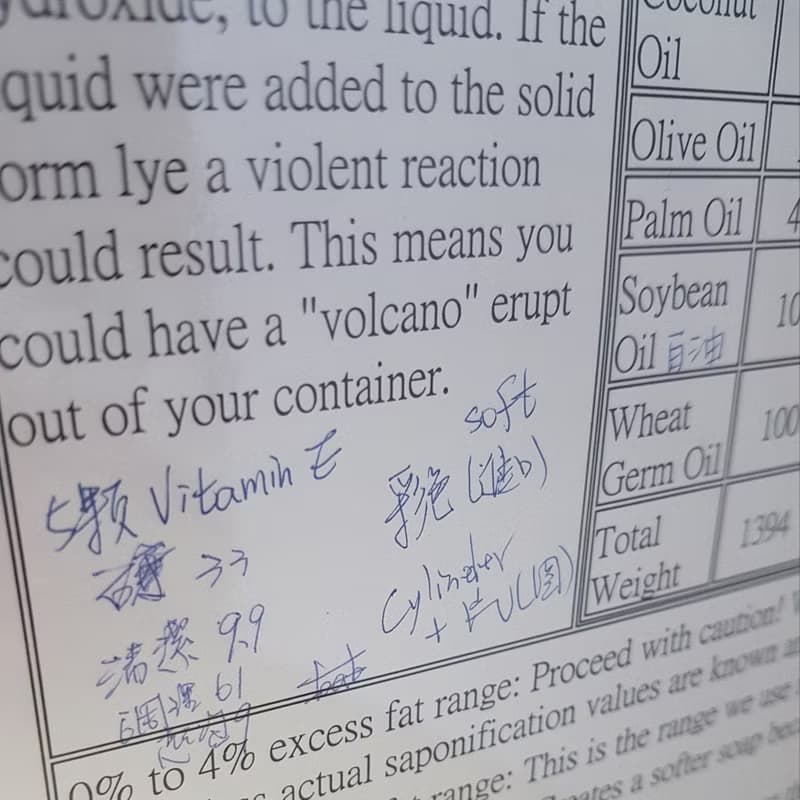 to the liquid. If the
quid were added to the solid
orm lye a violent reaction
could result. This means you
could have a "volcano" erupt
out of your container.
5颗 Vitamin E
硬 33
清潔 9.9
soft
彩色
Cylinder
+ 片
Oil
Olive Oil
Palm Oil
4
Soybean
Oil
10
Wheat
Germ Oil
100
Total
Weight
1394
0% to 4% excess fat range: Proceed with caution!
actual saponification values are known
range: This is the range we use
a softer soap